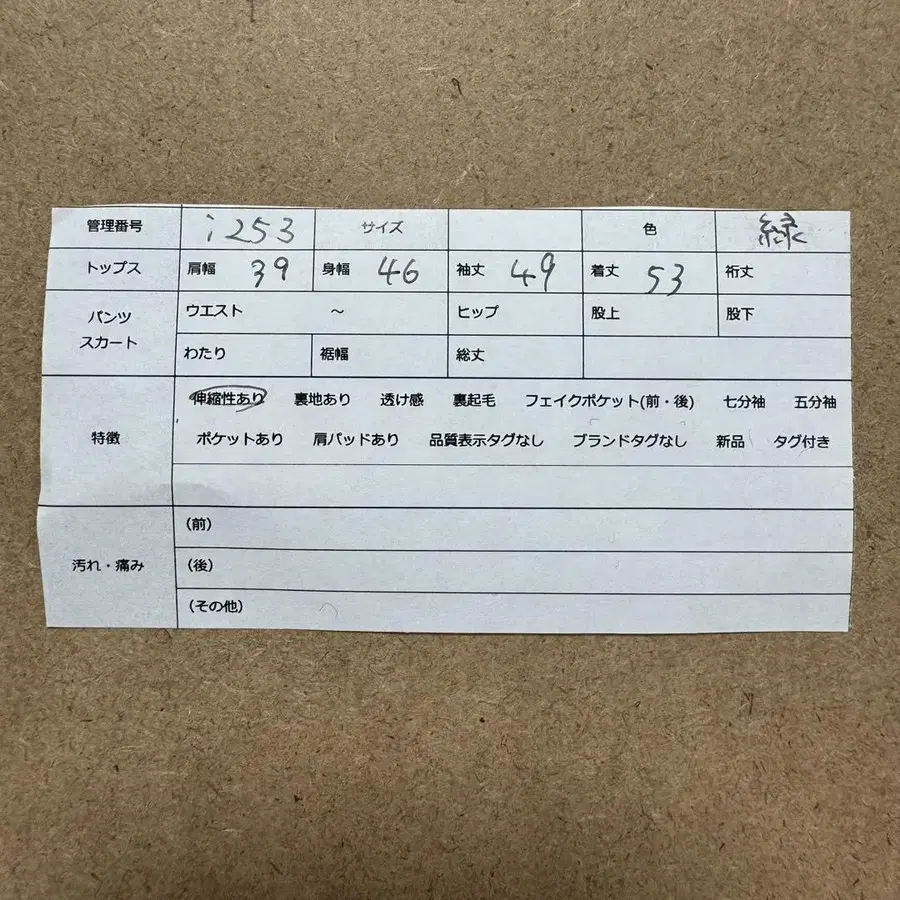 管理番号 i253 サイズ 色 緑
トップス 肩幅 39 身幅 46 袖丈 49 着丈 53 裄丈
パンツ スカート ウエスト ～ ヒップ 股上 股下
わたり 裾幅 総丈
特徴 伸縮性あり 裏地あり 透け感 裏起毛 フェイクポケット(前・後) 七分袖 五分袖
ポケットあり 肩パッドあり 品質表示タグなし ブランドタグなし 新品 タグ付き
汚れ・痛み (前)
(後)
(その他)